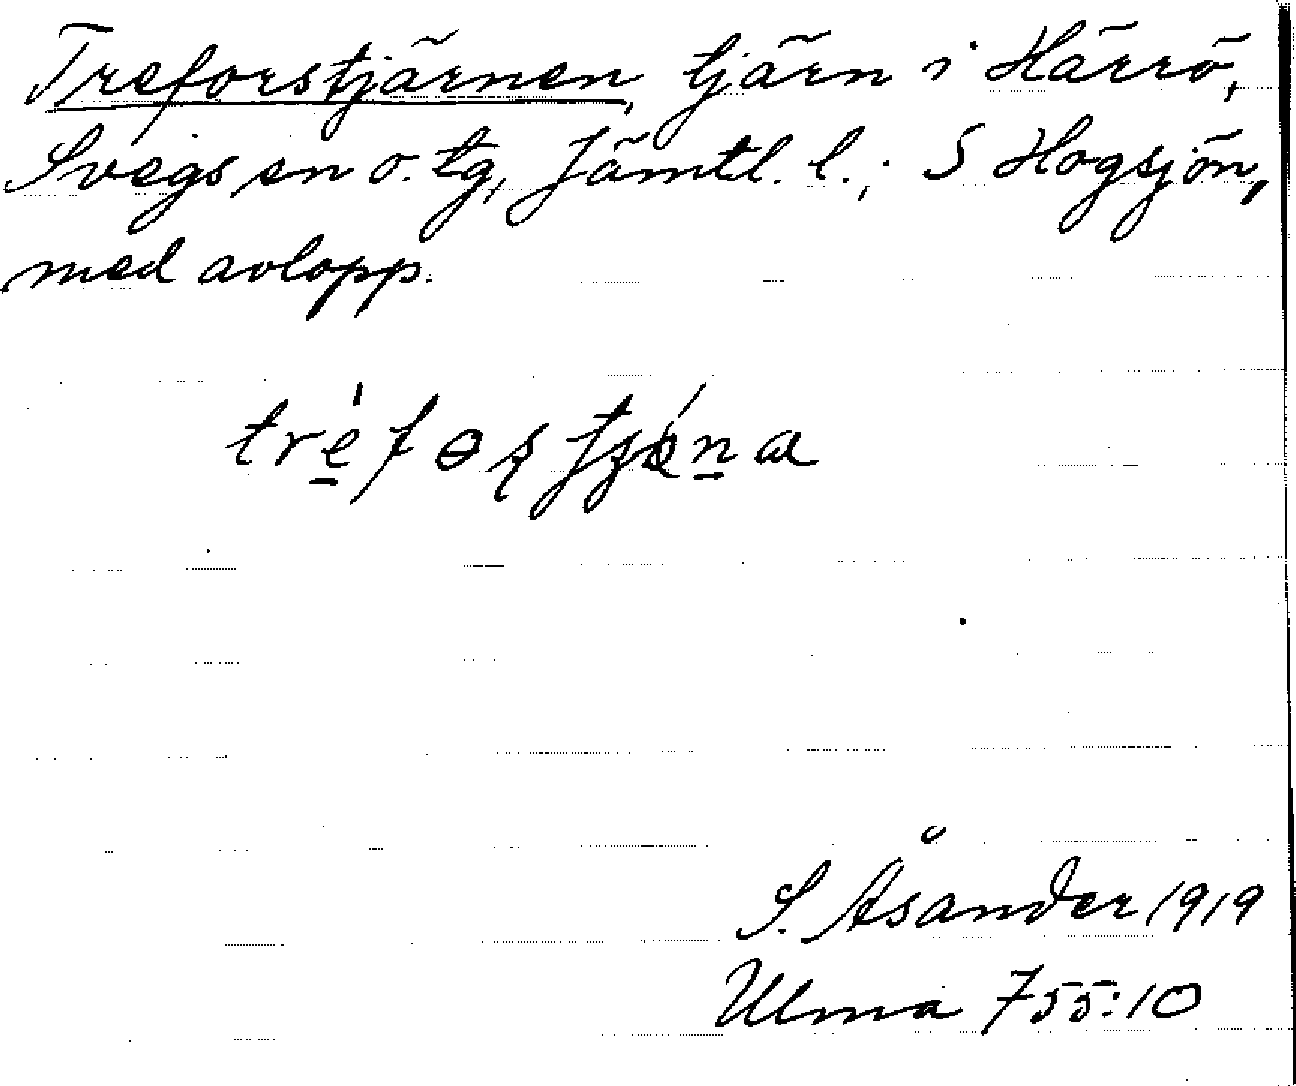 Treforstjärnen, tjärn i Härrö,
Svegs sn o. tg, Jämtl. l.; S Hogsjön,
med avlopp.
S. Åsander 1919
Ulma 755:10